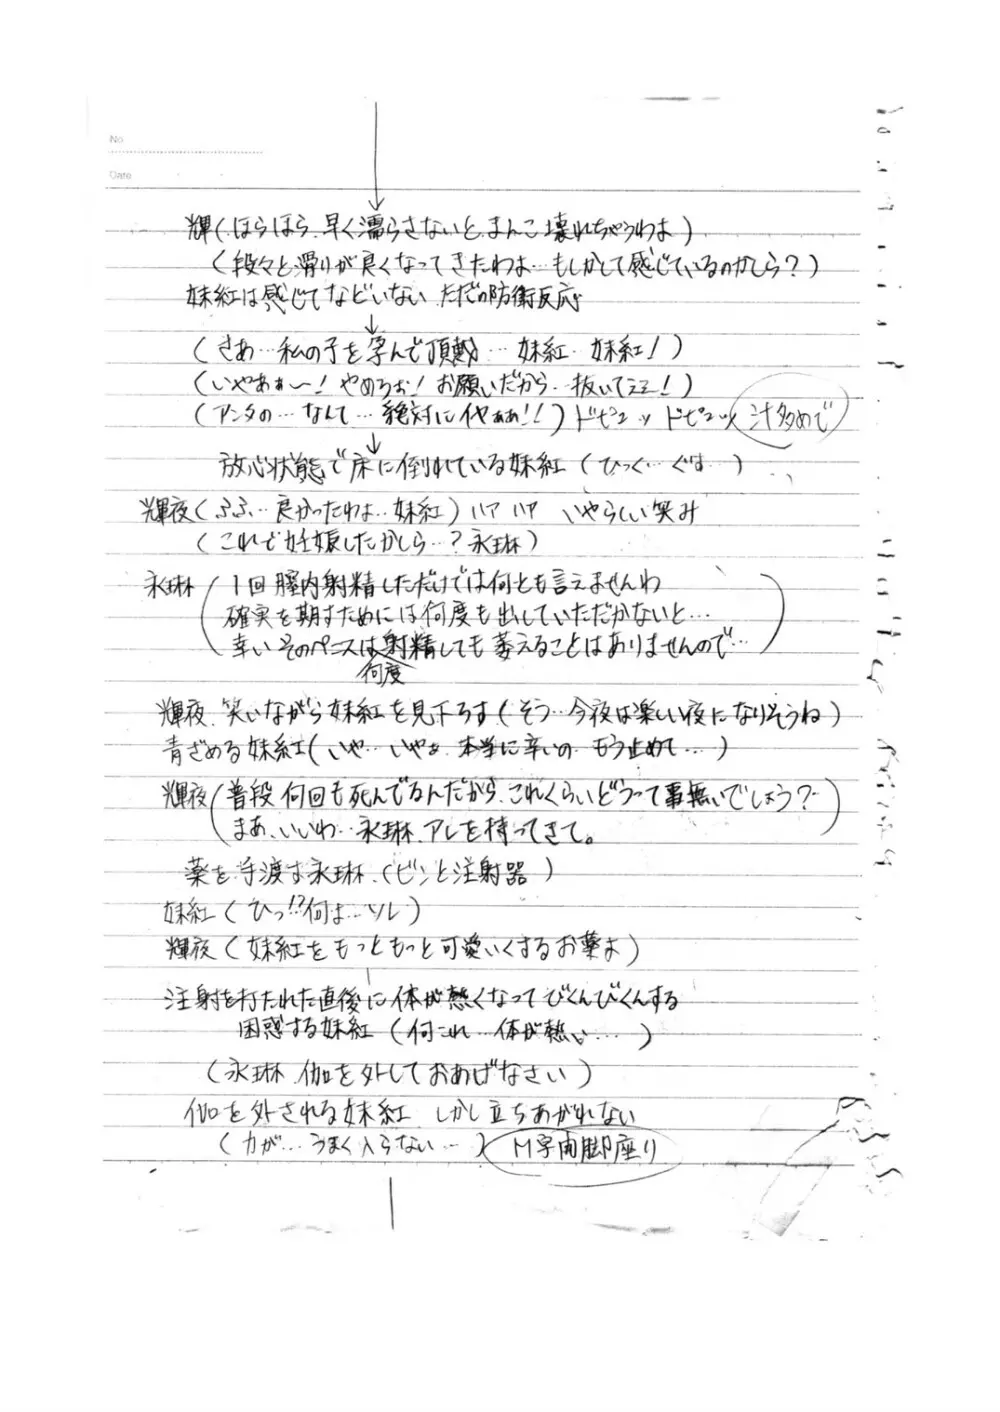 No.
Date
輝(ほらほら、早く濡らさないと、まんこ壊れちゃうわよ)
(段々と滑りが良くなってきたわよ…もしかして感じているのかしら?)
妹紅は感じてなどいない ただの防衛反応
(さあ…私の子を孕んで頂戴…妹紅…妹紅!)
(いやあぁ〜!やめろぉ!お願いだから…抜いてぇぇ!)
(アンタの…なんて…絶対にイヤぁぁ!!)ドピュッ ドピュッ 汁多めで
放心状態で床に倒れている妹紅(ひっく…ぐす…)
輝夜(ふふ…良かったわよ…妹紅)ハァ ハァ いやらしい笑み
(これで妊娠したかしら…?永琳)
永琳(1回膣内射精しただけでは何とも言えませんわ
確実を期すためには何度も出していただかないと…
幸いそのペニスは何度射精しても萎えることはありませんので…)
輝夜、笑いながら妹紅を見下ろす(そう…今夜は楽しい夜になりそうね)
青ざめる妹紅(いや…いやぁ 本当に辛いの…もう止めて…)
輝夜(普段何回も死んでるんだから、これくらいどうって事無いでしょう?
まあ、いいわ…永琳、アレを持ってきて。)
薬を手渡す永琳(ビンと注射器)
妹紅(ひっ!?何よ…ソレ)
輝夜(妹紅をもっともっと可愛いくするお薬よ)
注射を打たれた直後に体が熱くなってびくんびくんする
困惑する妹紅(何これ…体が熱い…)
(永琳、枷を外しておあげなさい)
枷を外される妹紅 しかし立ちあがれない
(力が…うまく入らない…)M字開脚座り